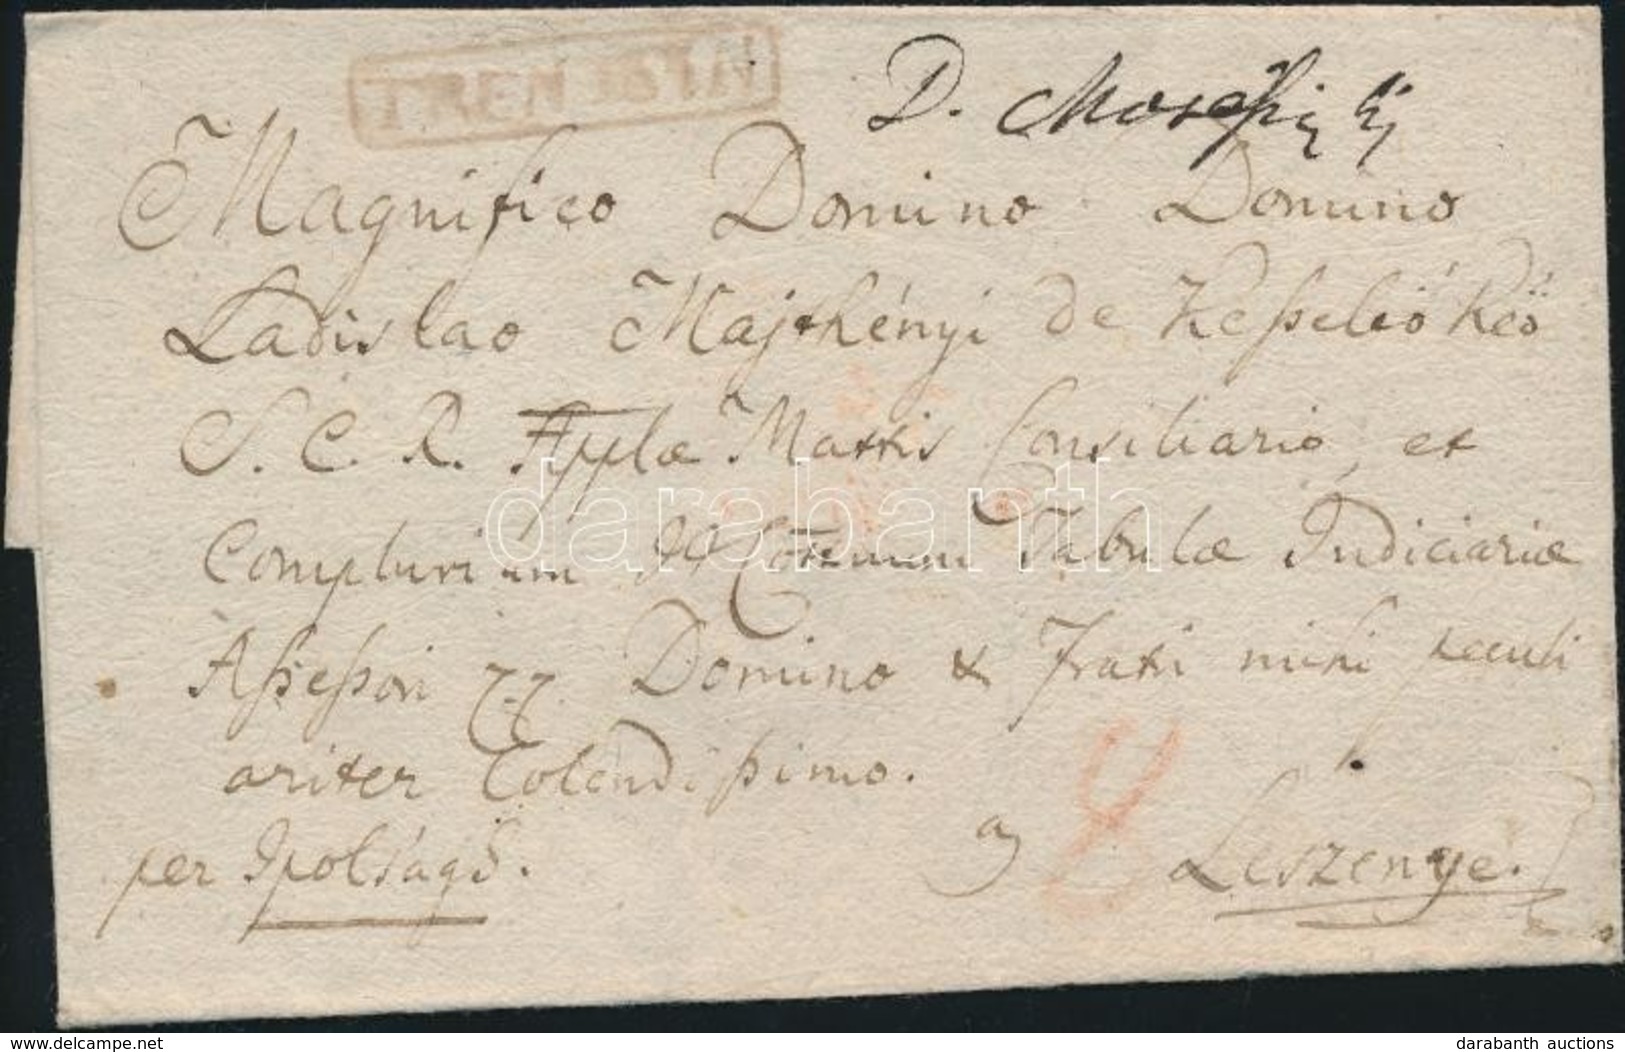 TRENTSIN
D.
Magnifico Domino Domino
Ladislao Majthényi de Keßeleö Keö
S. C. R. Applæ Mattis Consiliario, et
Complurium Tabulæ Judiciariæ
Aßeßori Domino & Frati mihi peculi
ariter Colendißimo.
per Ipolságh.
a
8
Leszenye.
darabanth
www.delcampe.net
darabanth auctions